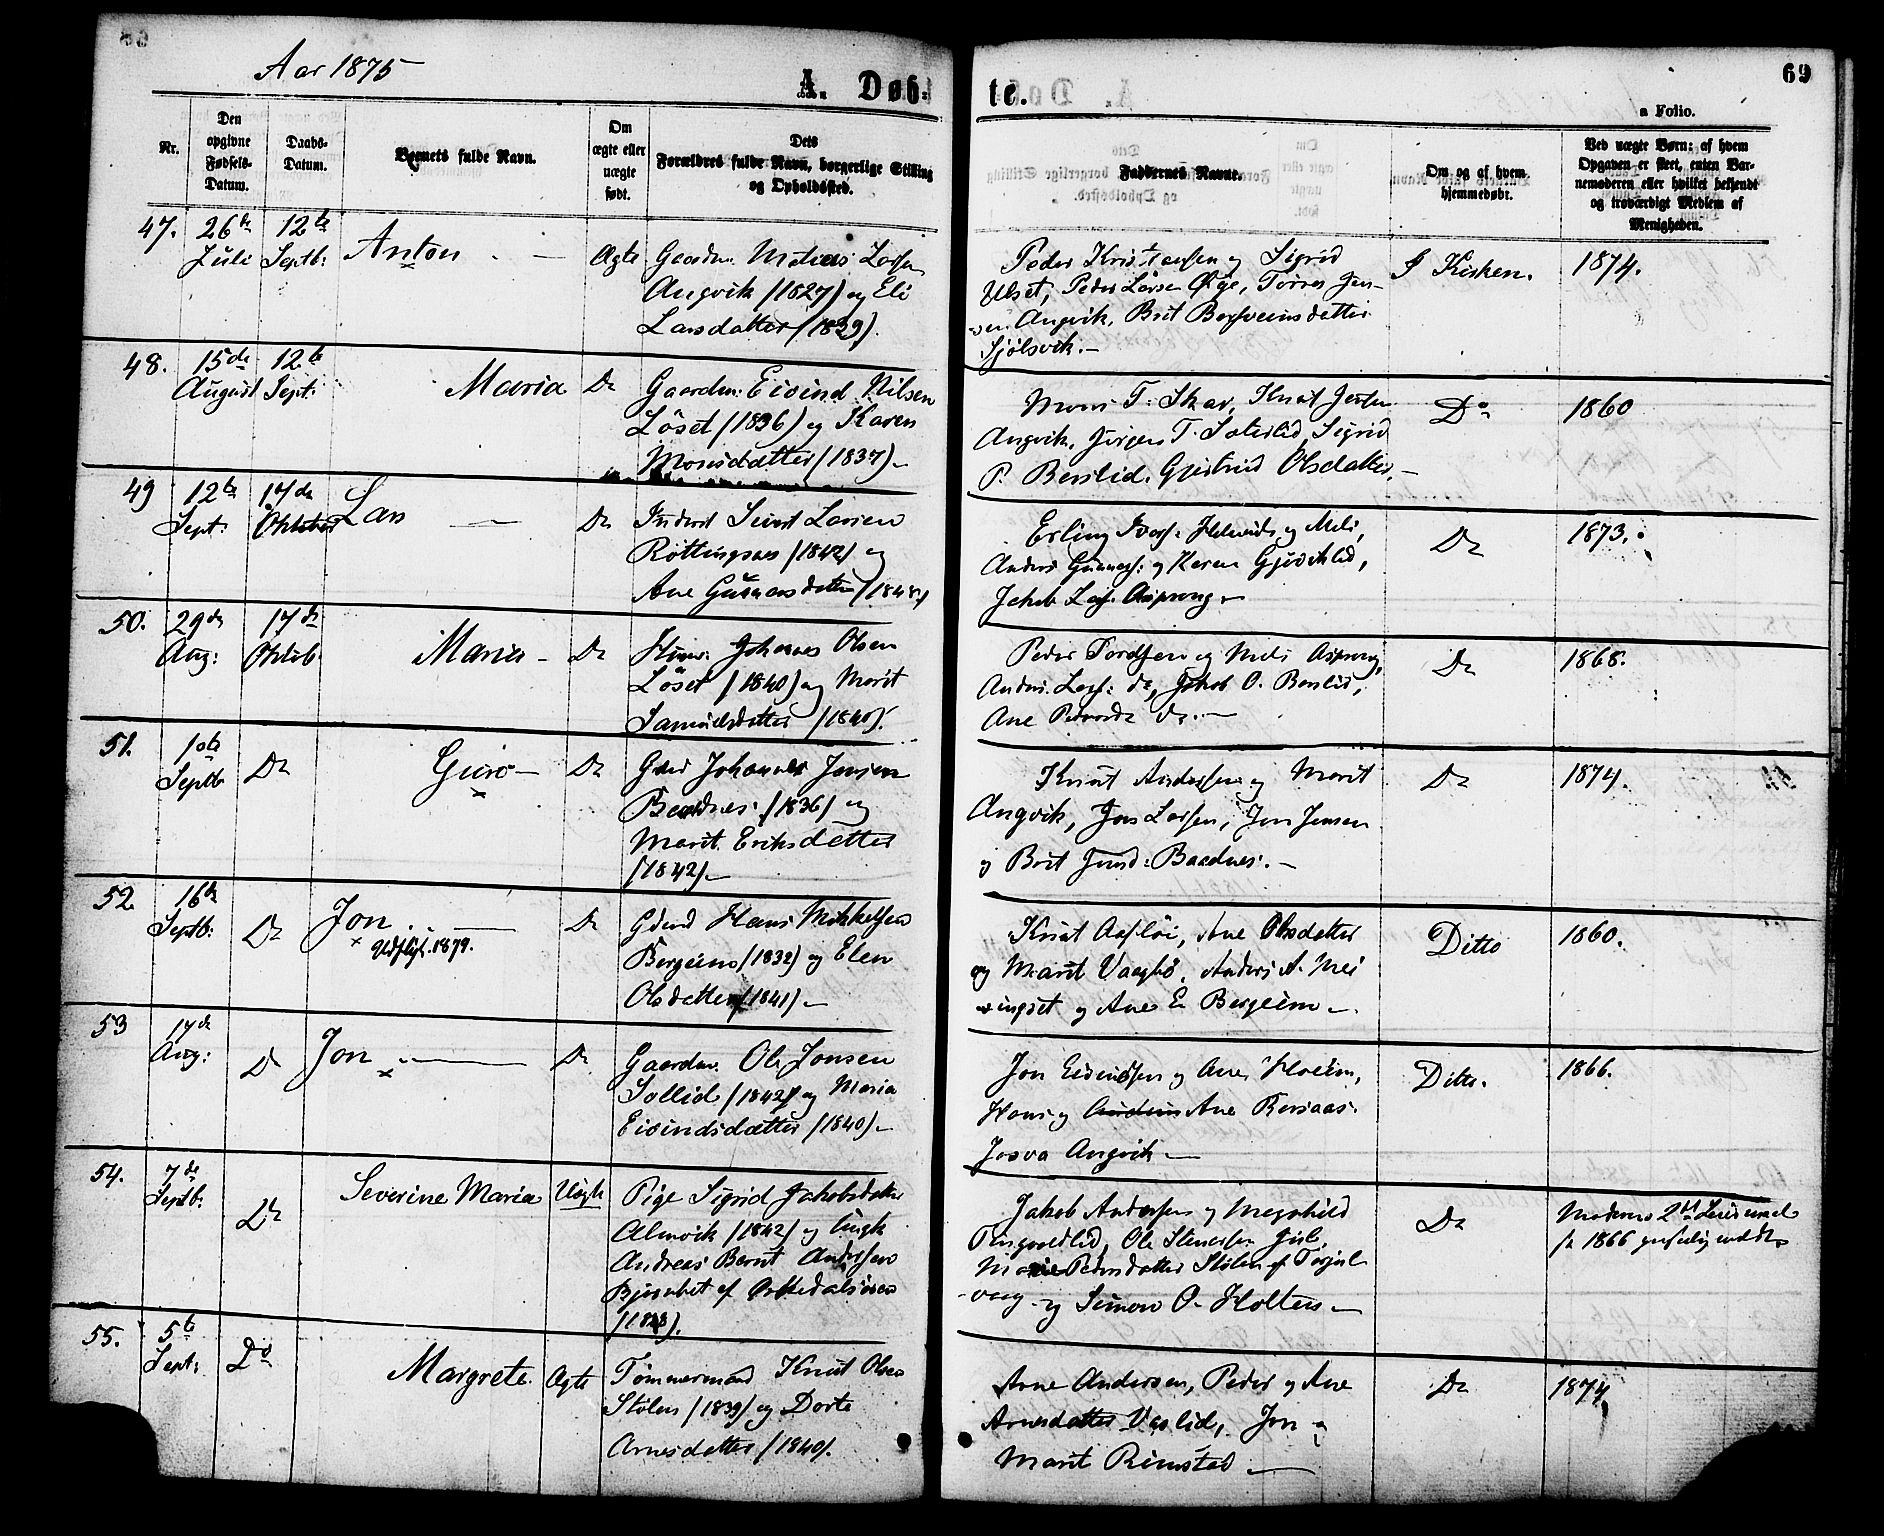 Aar 1875
A. Døb-
te.
69
a Folio.
Nr.
Den opgivne Fødsels-Datum.
Daabs-Datum.
Barnets fulde Navn.
Om ægte eller uægte født.
Dets Forældres fulde Navn, borgerlige Stilling og Opholdssted.
Faddernes Navne.
Om og af hvem hjemmedøbt.
Ved uægte Børn: af hvem Opgaven er skeet, enten Barnemoderen eller hvilket bekjendt og troværdigt Medlem af Menigheden.
47.
26de Juli
12te Septb:
Anton
Ægte
Gaardm. Matias Larsen
Angvik (1827) og Eli
Larsdatter (1839).
Peder Kristiansen og Sigrid
Ulset, Peder Larsen Øige, Torres Jen-
sen Angvik, Brit Bergsveinsdatter
Sjølsvik.-
I Kirken.
1874.
48.
15de August
12te Sept:
Maria
Do
Gaardm: Eivind Nilsen
Löset (1836) og Karen
Mosesdatter (1837).-
Mons T. Skar, Knut
Angvik, Jörgen T. Sæterlid, Sigrid
P. Berslid. Gjertrud Olsdatter.-
Do
1860
49
12te Sept:
17de Oktober
Lars
Do
Inderst Sivert Larsen
Röttingsnes (1842) og
Ane Gunnarsdatter (1848)
Erling og Meli,
Anders Gunnars: og Karen Gjövik lid,
Jakob Lars. Asprong.-
Do
1873.
50.
29de Aug:
17de Oktob
Maria-
Do
Johannes Olsen
Löset (1840) og Marit
Samuelsdatter (1840).
Peder Tordsen og Meli Asprong,
Anders Lars: do, Jakob O. Berslid,
Ane Do.-
Do
1868.
51.
10de Septb
Do
Guro-
Do
Johannes Jensen
Baadnes (1836) og
Marit Eriksdatter
(1842)-
Knut Andersen og Marit
Angvik, Jens Larsen, Jon Jensen
og Brit Baadnes.-
Do
1874.
52
16de Septb:
Do
Jon
1879.
Do
Hans Mikkelsen
Bergeim (1832) og Elen
Olsdatter (1841)-
Knut Ane Olsdatter
og Marit Vaagbø, Anders A. Mei-
singset og Ane E. Bergeim-
Ditto
1860.
53
17de Aug:
Do
Jon
Do
Gaardm. Ole Jonsen
Sollid (1842) og Maria
Eivindsdatter (1840)-
Jon Eivindsen og Ane Hoëim,
Hans og Ane Bersaas.
Josva Angvik-
Ditto.
1866.
54.
7de Septb:
Do
Severine Maria
Uægte
Pige Sigrid Jakobsdatter
Almvik (1842) og Ungk
Andreas Bernt Andersen
af
Jakob Andersen og Magnhild
Tingvoldlid, Ole Stenersen
Marie Pedersdatter Stölen af Torjul-
vaag og Simon O. Holten-
Do
Moderens 2det Leiermaal
1866
55.
5te Sept:
Do
Margrete
Ægte
Tømmermand Knut Olsen
Stølen (1839) og Dorte
Arnesdatter (1840).
Arne Andersen, Peder og Ane
Arnesdatter Vaslid, Jon og
Marit Rimstad-
Do
1874